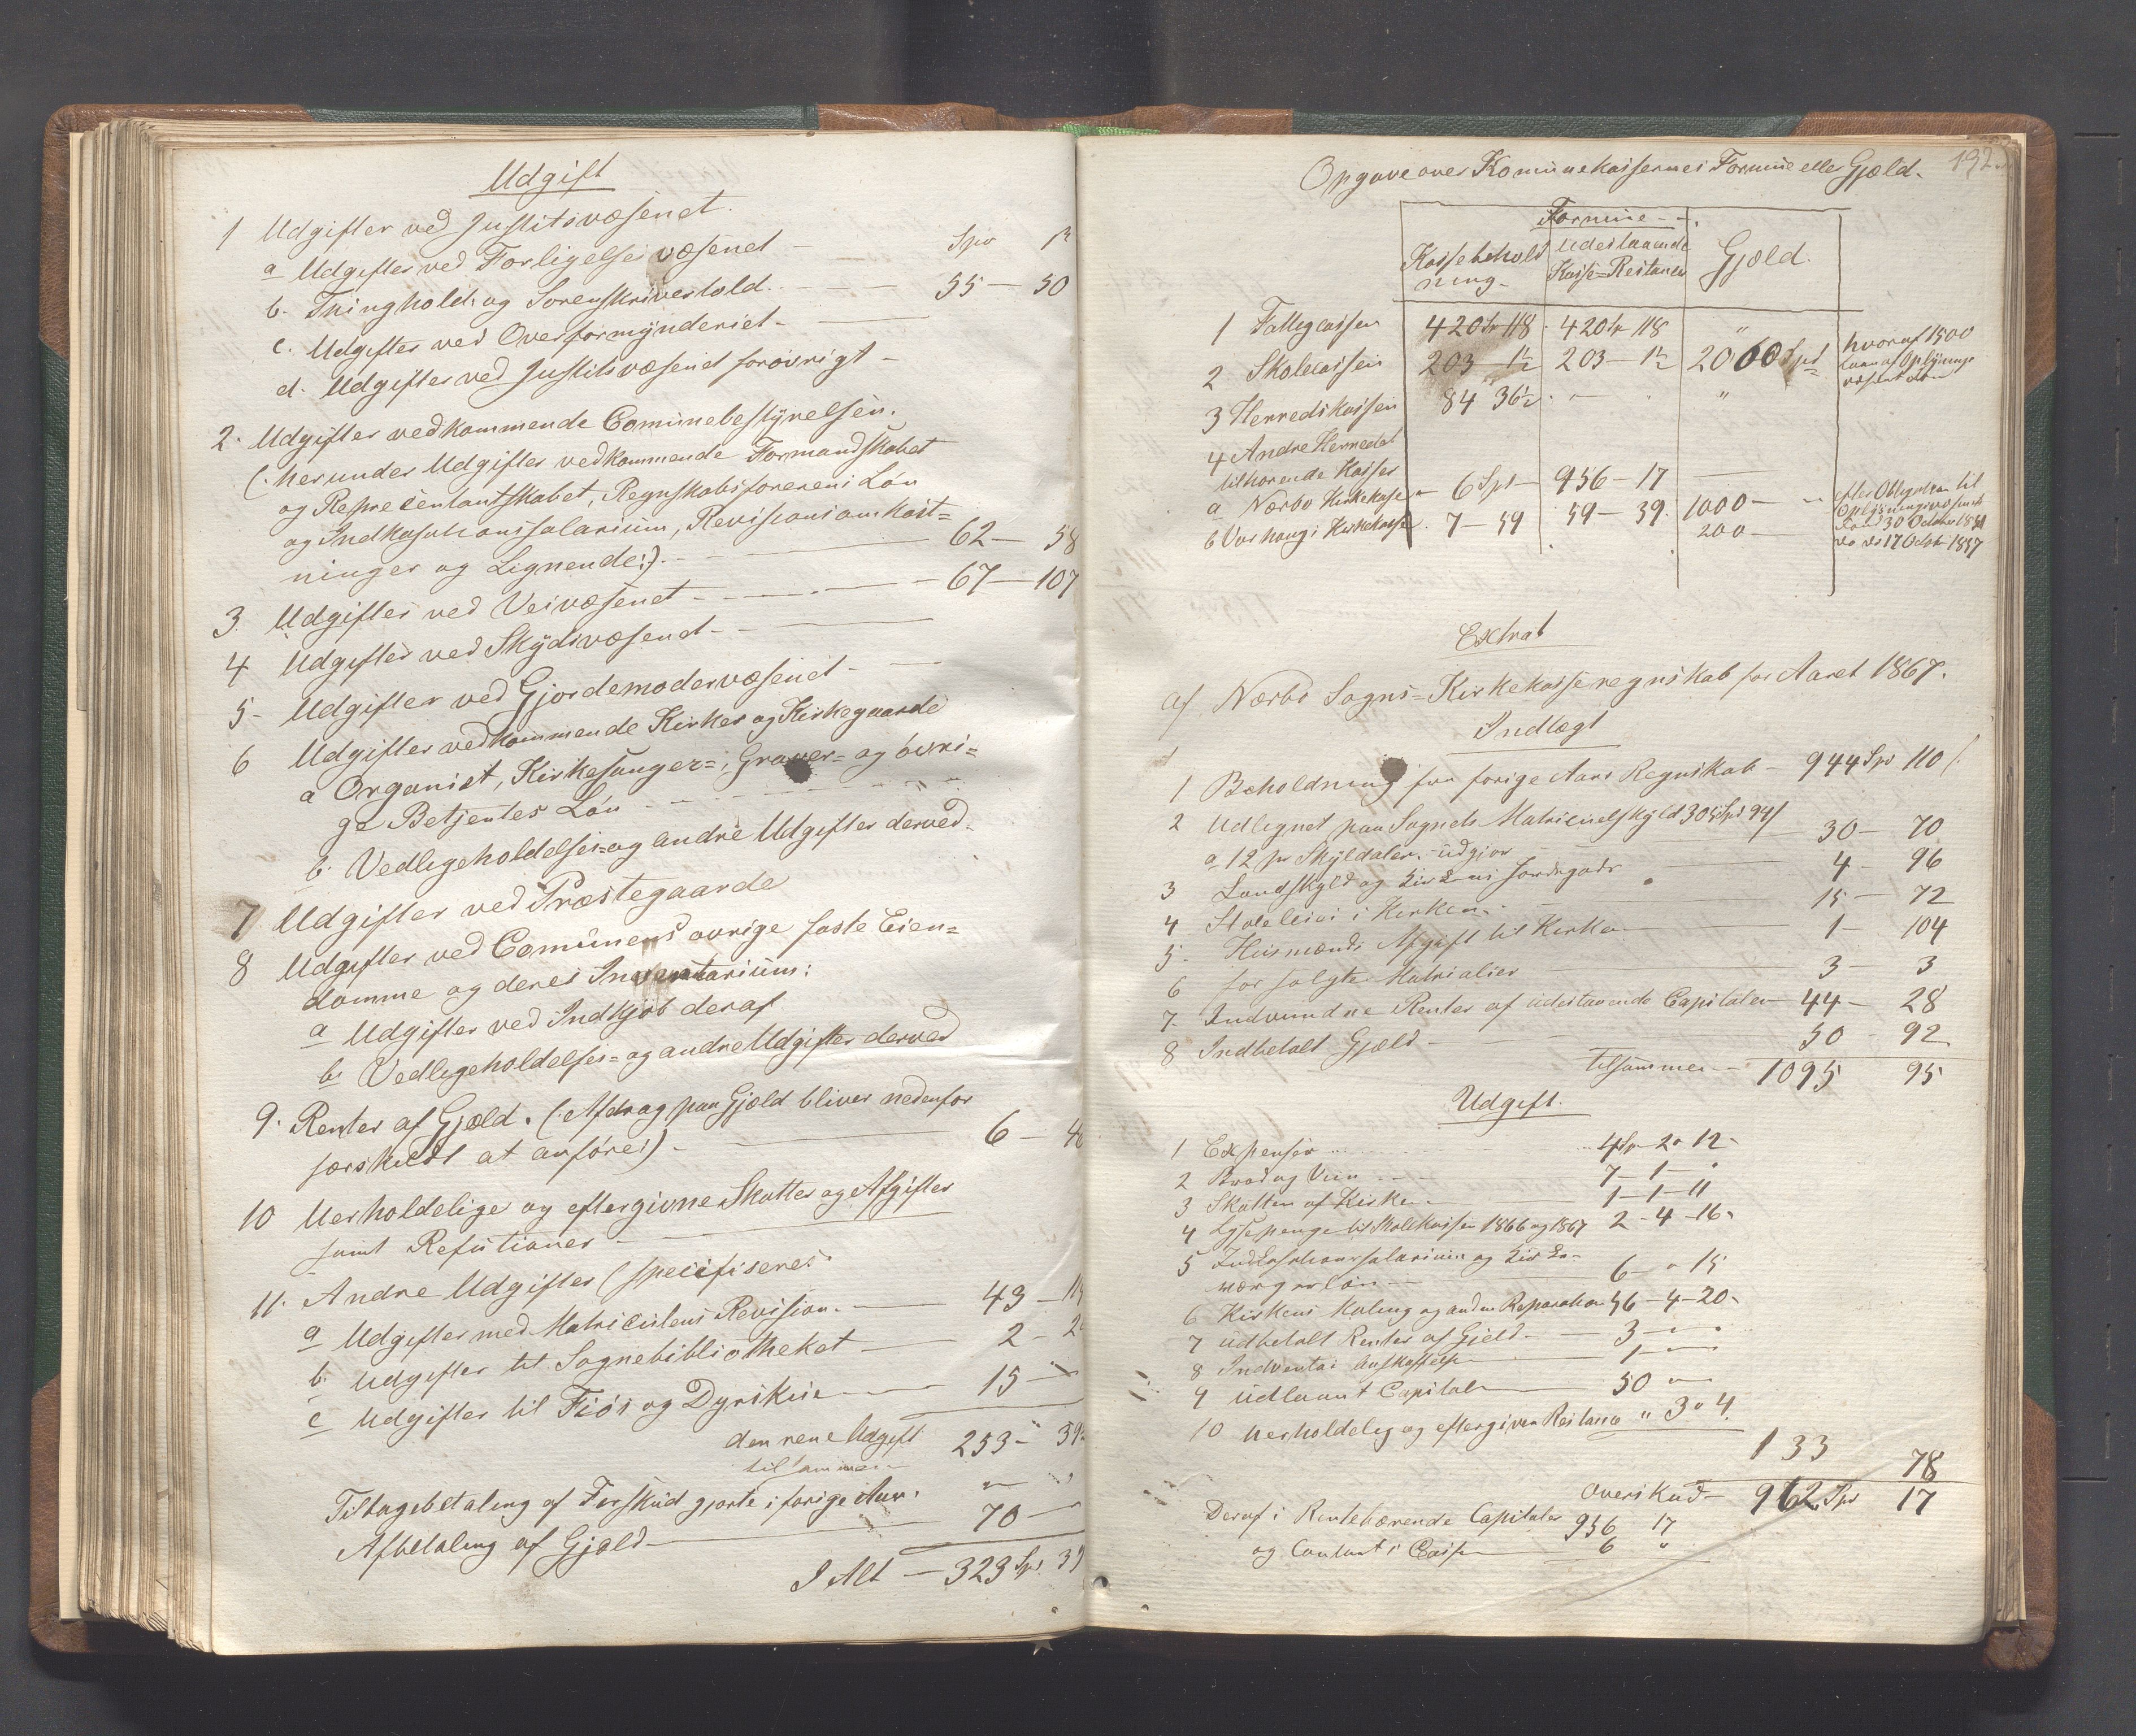 Udgift
1 Udgifter ved Justitsvæsenet.
a Udgifter ved Forligelsesvæsenet – Spd ß
b. Thinghold og Sorenskriverhold. – 55 – 50
c. Udgifter ved Overformynderiet –
d. Udgifter ved Justitsvæsenet forøvrigt –
2. Udgifter vedkommende Comunebestyrelsen.
(: herunder Udgifter vedkommende Formandskabet
og Represcentantskabet, Regnskabsførerens Løn
og Indkasationssalarium, Revisionsomkost=
ninger og Lignende:). – 62 – 58
3. Udgifter ved Veivæsenet – 67 – 107
4 Udgifter ved Skydsvæsenet –
5 – Udgifter ved Gjordemodervæsenet –
6 Udgifter vedkommende Kirker og Kirkegaarde
a Organist, Kirkesanger=, Graver= og øvri=
ge Betjentes Løn –
b. Vedligeholdelses= og andre Udgifter derved.
7 Udgifter ved Præstegaarde
8 Udgifter ved Comunens øvrige faste Eien=
domme og deres Inventarium:
a Udgifter ved Indkjøb deraf
b. Vedligeholdelses= og andre Udgifter derved
9. Renter af Gjæld. (: Afdrag paa Gjæld bliver nedenfor
særskildt at anføre:) – 6 –
10 Uerholdelige og eftergivne Skatter og Afgifter
samt Refusioner –
11. Andre Udgifter (specifiseres:
a Udgifter med Matriculens Revision. – 43 –
b. Udgifter til Sognebibliotheket – 2 –
c Udgifter til Fiøs og Dyrskue – 15 –
den rene Udgift 253 – 39
tilsammen
Tilbagebetaling af Forskud gjorte i forige Aar.
Afbetaling af Gjæld – 70 –
I Alt – 323 Spd. 39
192
Opgave over Komunekassernes Formue eller Gjæld.
Formue –
Kassebehold Udestaaende Gjæld.
ning – Kasse=Restancer
1 Fattigcassen 420 Sp 118 420 Sp 118 "
2 Skolecassen 203 – 1½ 203 – 1½ 2060 Spd hvoraf 1500
Laan af Oplysnings
væsenet
3 Herredskassen 84 36½ – "
4 Andre Herredet
tilhørende Kasser
a Nærbø Kirkekasse – 6 Spd – 956 – 17 —
b Varhaug's Kirkekasse 7 – 59 59 – 39. 1000 – efter Obligation til
200 – Oplysningsvæsenets
Fond 30 October 1851
do do 17 Octob 1857
Extrat
af Nærbø Sogns=Kirkekasseregnskab for Aaret 1867.
Indtægt
1 Beholdning fra forige Aars Regnskab – 944 Spd 110 ß.
2 Udlignet paa Sognets Matriculskyld 305 Spd 94 ß
a 12 pr Skyldaler. udgjør – 30 – 70
3 Landskyld og – 4 – 96
4 Stoleleier i Kirken. – 15 – 72
5. Huusmænds Afgift til Kirken – 1 – 104
6 for solgte Matrialier – 3 – 3
7. Indvundne Renter af udestaaende Capitaler – 44 – 28
8 Indbetalt Gjæld – 50 – 92
tilsammen – 1095 95
Udgift.
1 Expenser – 4 Sp – 2 " 12 –
2 Brød og Viin – 7 – 1 – "
3 Skatten af Kirken – 1 – 1 – 11
4 Lysepenge til Skolekassen 1866 og 1867 2 – 4 – 16 –
5 Indkasationssalarium og Kirke=
værgerløn – 6 – " 15
6 Kirkens Maling og anden Reparation 56 – 4 – 20 –
7 udbetalt Renter af Gjeld – 3 – "
8 Indventar Anskaffelse – 1 – "
9 Udlaant Capital – 50 "
10 Uerholdelig og eftergiven Restance " 3 " 4.
133 78
Overskud – 962 Spd 17
Deraf i Rentebærende Capitaler 956 17
og Contant i Cassen – 6 "